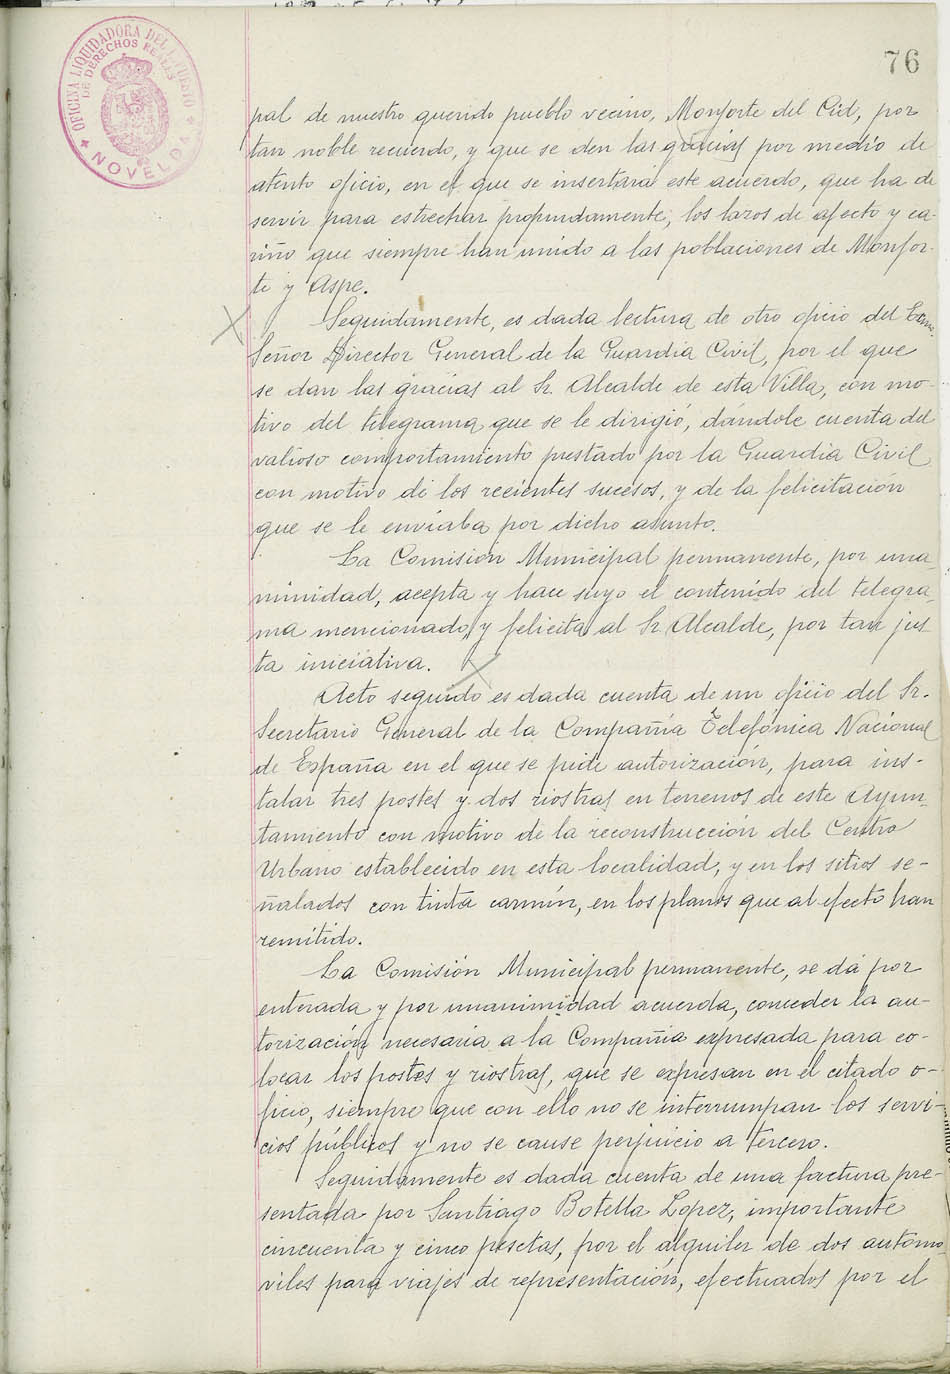 OFICINA LIQUIDADORA DEL IMPUESTO
DE DERECHOS REALES
NOVELDA
76
pal de nuestro querido pueblo vecino, Monforte del Cid, por
tan noble recuerdo, y que se den las gracias por medio de
atento oficio, en el que se insertará este acuerdo, que ha de
servir para estrechar profundamente, los lazos de afecto y ca-
riño que siempre han unido a las poblaciones de Monfor-
te y Aspe.
Seguidamente, es dada lectura de otro oficio del Excmo.
Señor Director General de la Guardia Civil, por el que
se dan las gracias al Sr. Alcalde de esta Villa, con mo-
tivo del telegrama que se le dirigió, dándole cuenta del
valioso comportamiento prestado por la Guardia Civil
con motivo de los recientes sucesos, y de la felicitación
que se le enviaba por dicho asunto.
La Comisión Municipal permanente, por una
nimidad, acepta y hace suyo el contenido del telegra-
ma mencionado, y felicita al Sr. Alcalde, por tan jus
ta iniciativa.
Acto seguido es dada cuenta de un oficio del Sr.
Secretario General de la Compañía Telefónica Nacional
de España en el que se pide autorización, para ins-
talar tres postes y dos riostras en terrenos de este Ayun-
tamiento con motivo de la reconstrucción del Centro
Urbano establecido en esta localidad, y en los sitios se-
ñalados con tinta carmín, en los planos que al efecto han
remitido.
La Comisión Municipal permanente, se dá por
enterada y por unanimidad acuerda, conceder la au-
torización necesaria a la Compañia expresada para co-
locar los postes y riostras, que se expresan en el citado o-
ficio, siempre que con ello no se interrumpan los servi-
cios públicos y no se cause perjuicio a tercero.
Seguidamente es dada cuenta de una factura pre-
sentada por Santiago Botella Lopez, importante
cincuenta y cinco pesetas, por el alquiler de dos automo-
viles para viajes de representación, efectuados por el